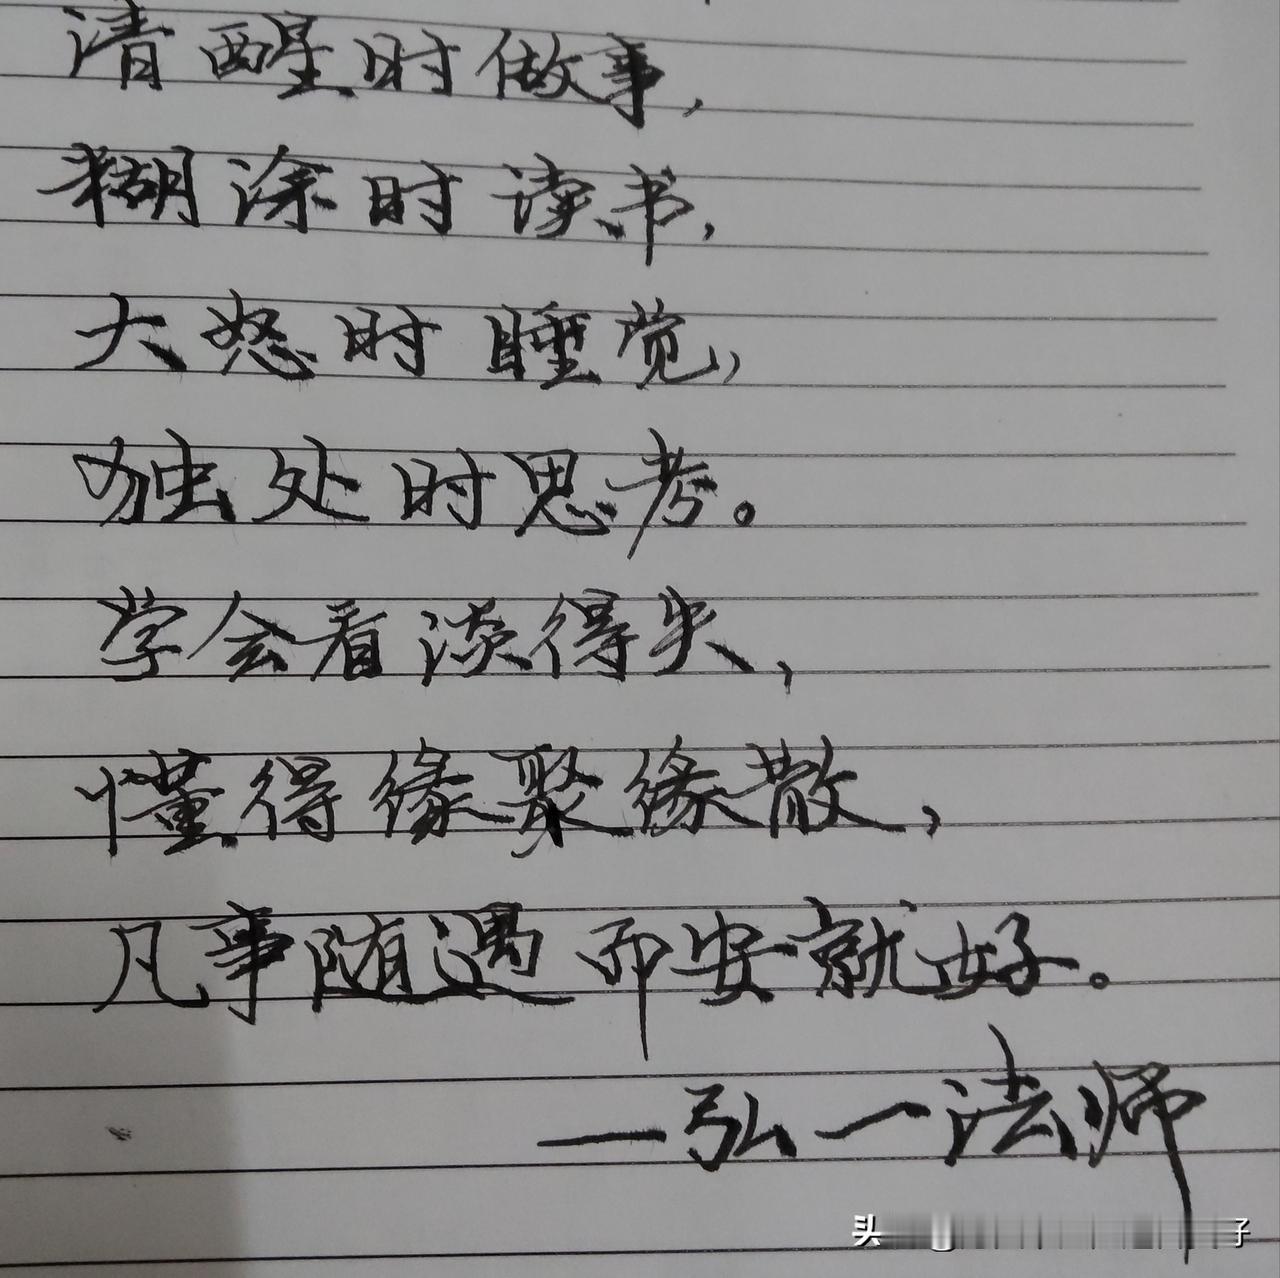 清醒时做事,
糊涂时读书,
大怒时睡觉,
独处时思考。
学会看淡得失,
懂得缘聚缘散,
凡事随遇而安就好。
—弘一法师
头